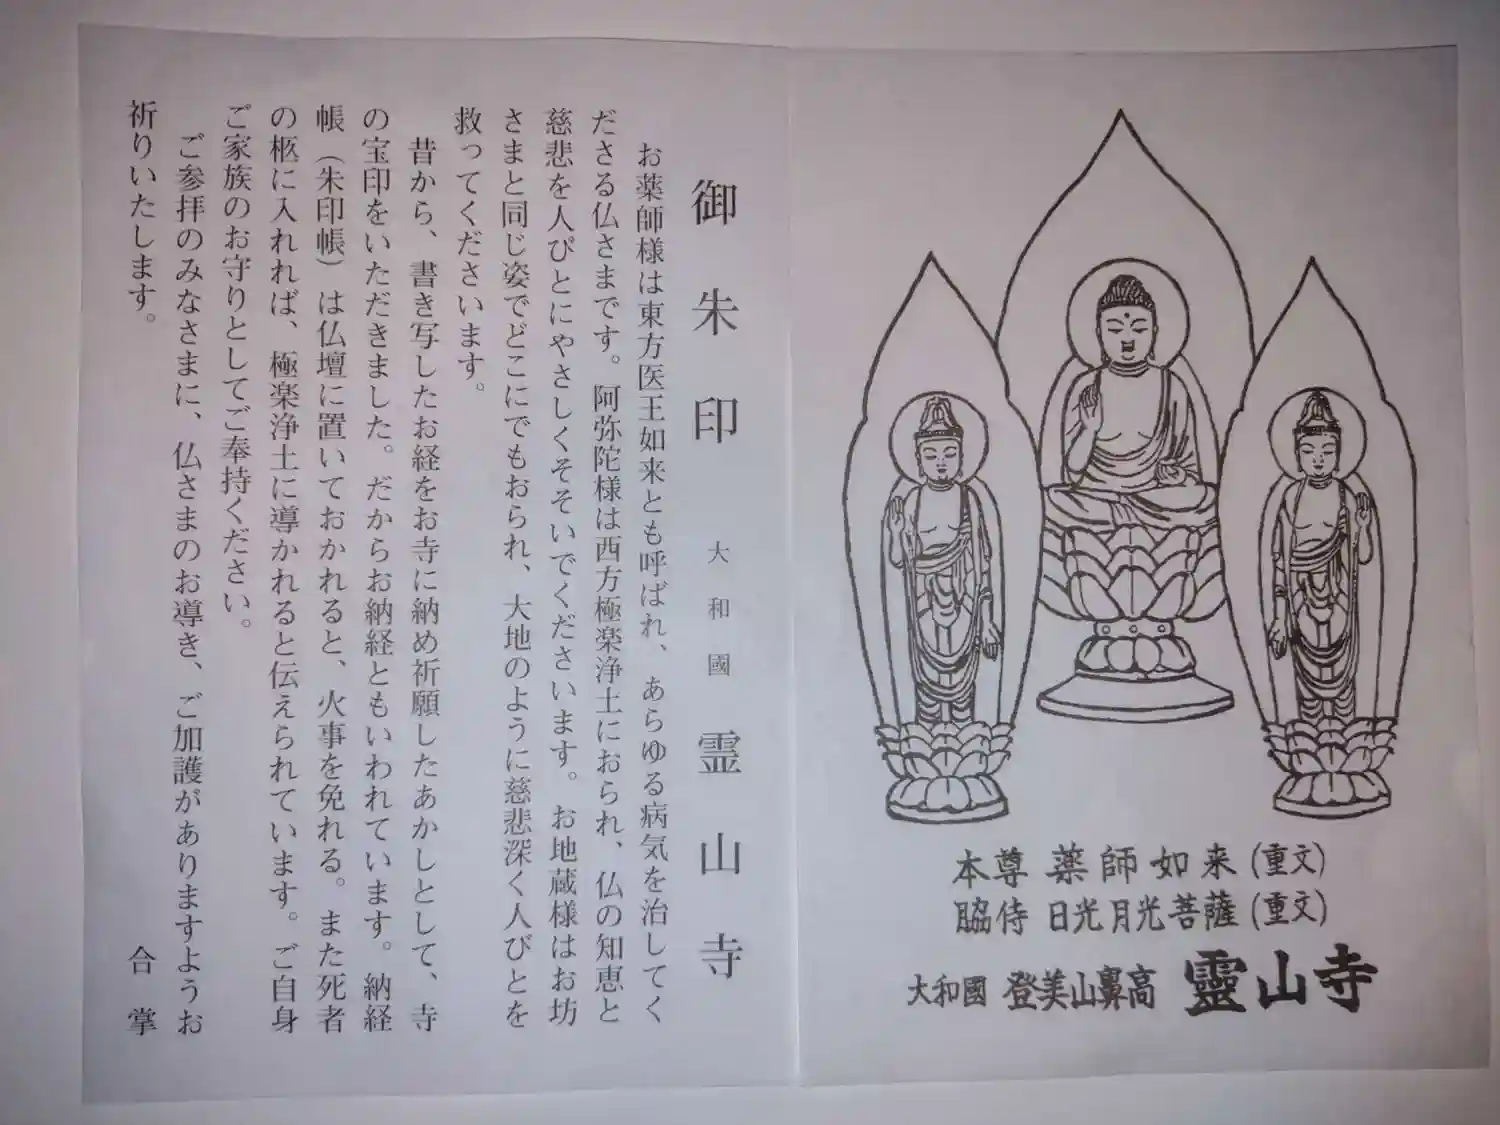 御朱印 大和國 霊山寺
お薬師様は東方医王如来とも呼ばれ、あらゆる病気を治してく
ださる仏さまです。阿弥陀様は西方極楽浄土におられ、仏の知恵と
慈悲を人びとにやさしくそそいでくださいます。お地蔵様はお坊
さまと同じ姿でどこにでもおられ、大地のように慈悲深く人びとを
救ってくださいます。
昔から、書き写したお経をお寺に納め祈願したあかしとして、寺
の宝印をいただきました。だからお納経ともいわれています。納経
帳（朱印帳）は仏壇に置いておかれると、火事を免れる。また死者
の柩に入れれば、極楽浄土に導かれると伝えられています。ご自身
ご家族のお守りとしてご奉持ください。
ご参拝のみなさまに、仏さまのお導き、ご加護がありますようお
祈りいたします。
合掌
本尊 薬師如来(重文)
脇侍 日光月光菩薩(重文)
大和國 登美山鼻高 靈山寺